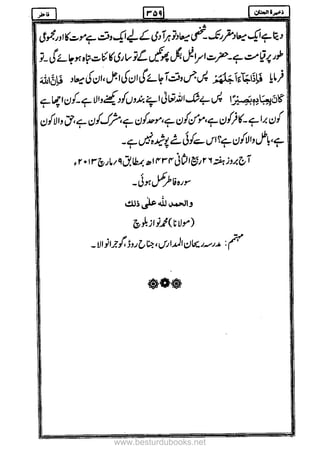 ذخیرۃ الجنان
۳۵۹
فاطر
دیتا ہے ایک میعاد مقرر تک۔ شخصی میعاد تو ہر آدمی کے لیے ایک وقت ہے موت کا اور مجموعی
طور پر قیامت ہے۔ حضرت اسرافیل بگل پھونکیں گے تو ساری کائنات تباہ ہو جائے گی۔ تو
فرمایا فَاِذَا جَآءَ اَجَلُهُمْ پس جس وقت آ جائے گی ان کی اجل، ان کی میعاد فَاِنَّ اللّٰهَ
كَانَ بِعِبَادِهٖ بَصِيْرًا پس بے شک اللہ تعالیٰ اپنے بندوں کو دیکھنے والا ہے۔ کون اچھا ہے
کون برا ہے۔ کافر کون ہے، مومن کون ہے، موحد کون ہے، مشرک کون ہے، حق والا کون
ہے، باطل والا کون ہے؟ اس سے کوئی شے پوشیدہ نہیں ہے۔
آج بروز ہفتہ ۲۶ ربیع الثانی ۱۴۳۴ھ بمطابق ۹ مارچ ۲۰۱۳ء
سورہ فاطر مکمل ہوئی۔
والحمد للہ علی ذلک
(مولانا) محمد نواز بلوچ
مہتمم : مدرسہ ریحان المدارس، جناح روڈ، گوجرانوالا۔
www.besturdubooks.net